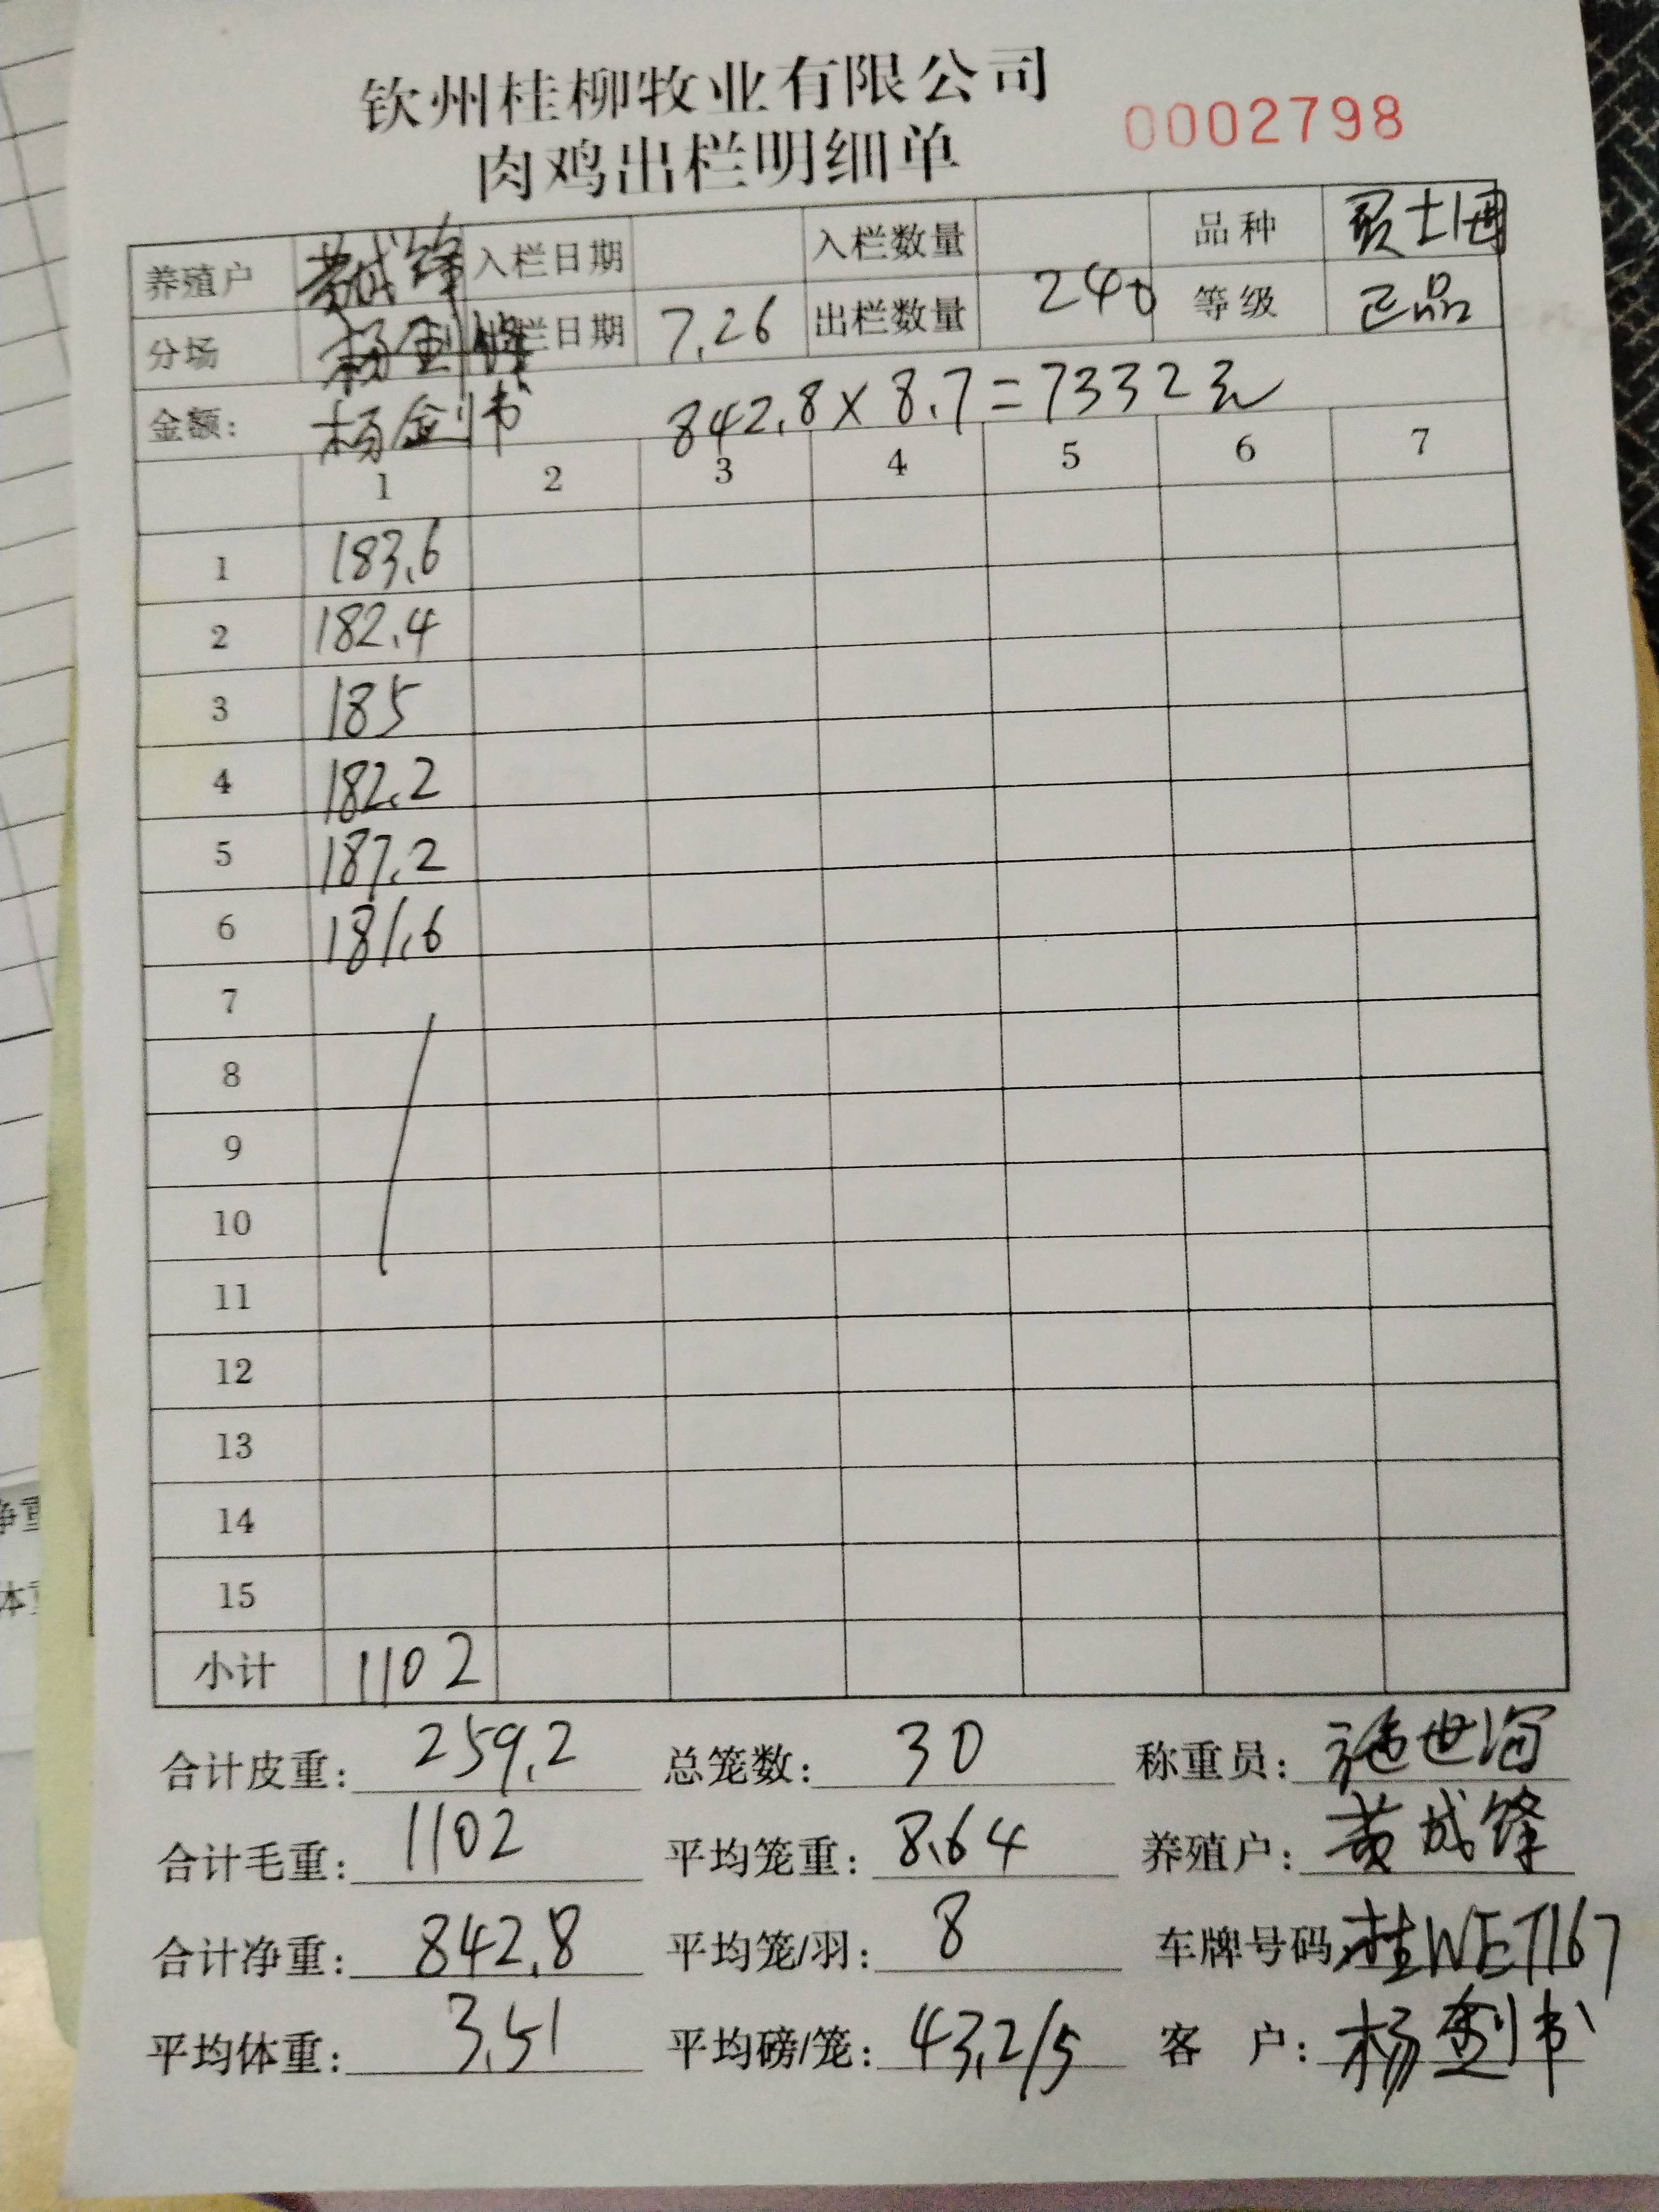 钦州桂柳牧业有限公司
肉鸡出栏明细单
0002798
养殖户 黄成锋 入栏日期 入栏数量 品种
分场 栏日期 7.26 出栏数量 240 等级 正品
金额: 杨剑书 842.8×8.7=7332元
1 2 3 4 5 6 7
1 183.6
2 182.4
3 185
4 182.2
5 187.2
6 181.6
7
8
9
10
11
12
13
14
15
小计 1102
合计皮重: 259.2 总笼数: 30 称重员: 施世海
合计毛重: 1102 平均笼重: 8.64 养殖户: 黄成锋
合计净重: 842.8 平均笼/羽: 8 车牌号码: 桂WET167
平均体重: 3.51 平均磅/笼: 43.2/5 客 户: 杨剑书
净重
体